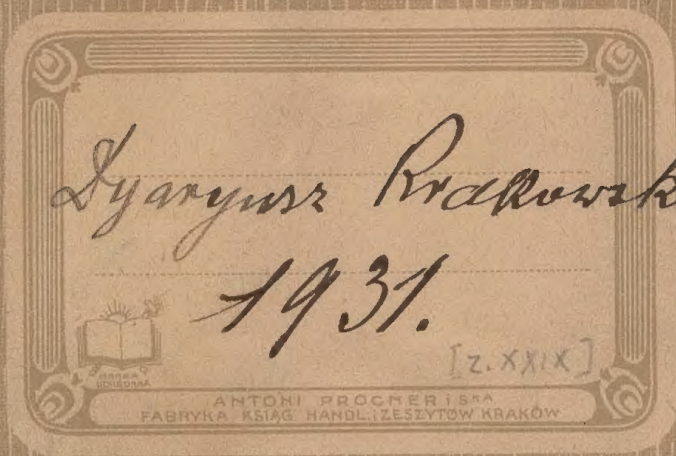 Dyaryusz Krakowsk
1931.
[z. XXIX]
MARKA
OCHRONNA
ANTONI PROCNER i SKA
FABRYKA KSIĄG HANDL. i ZESZYTÓW KRAKÓW